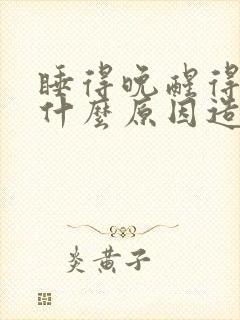 睡得晚醒得
什麼原因造
炎黃子